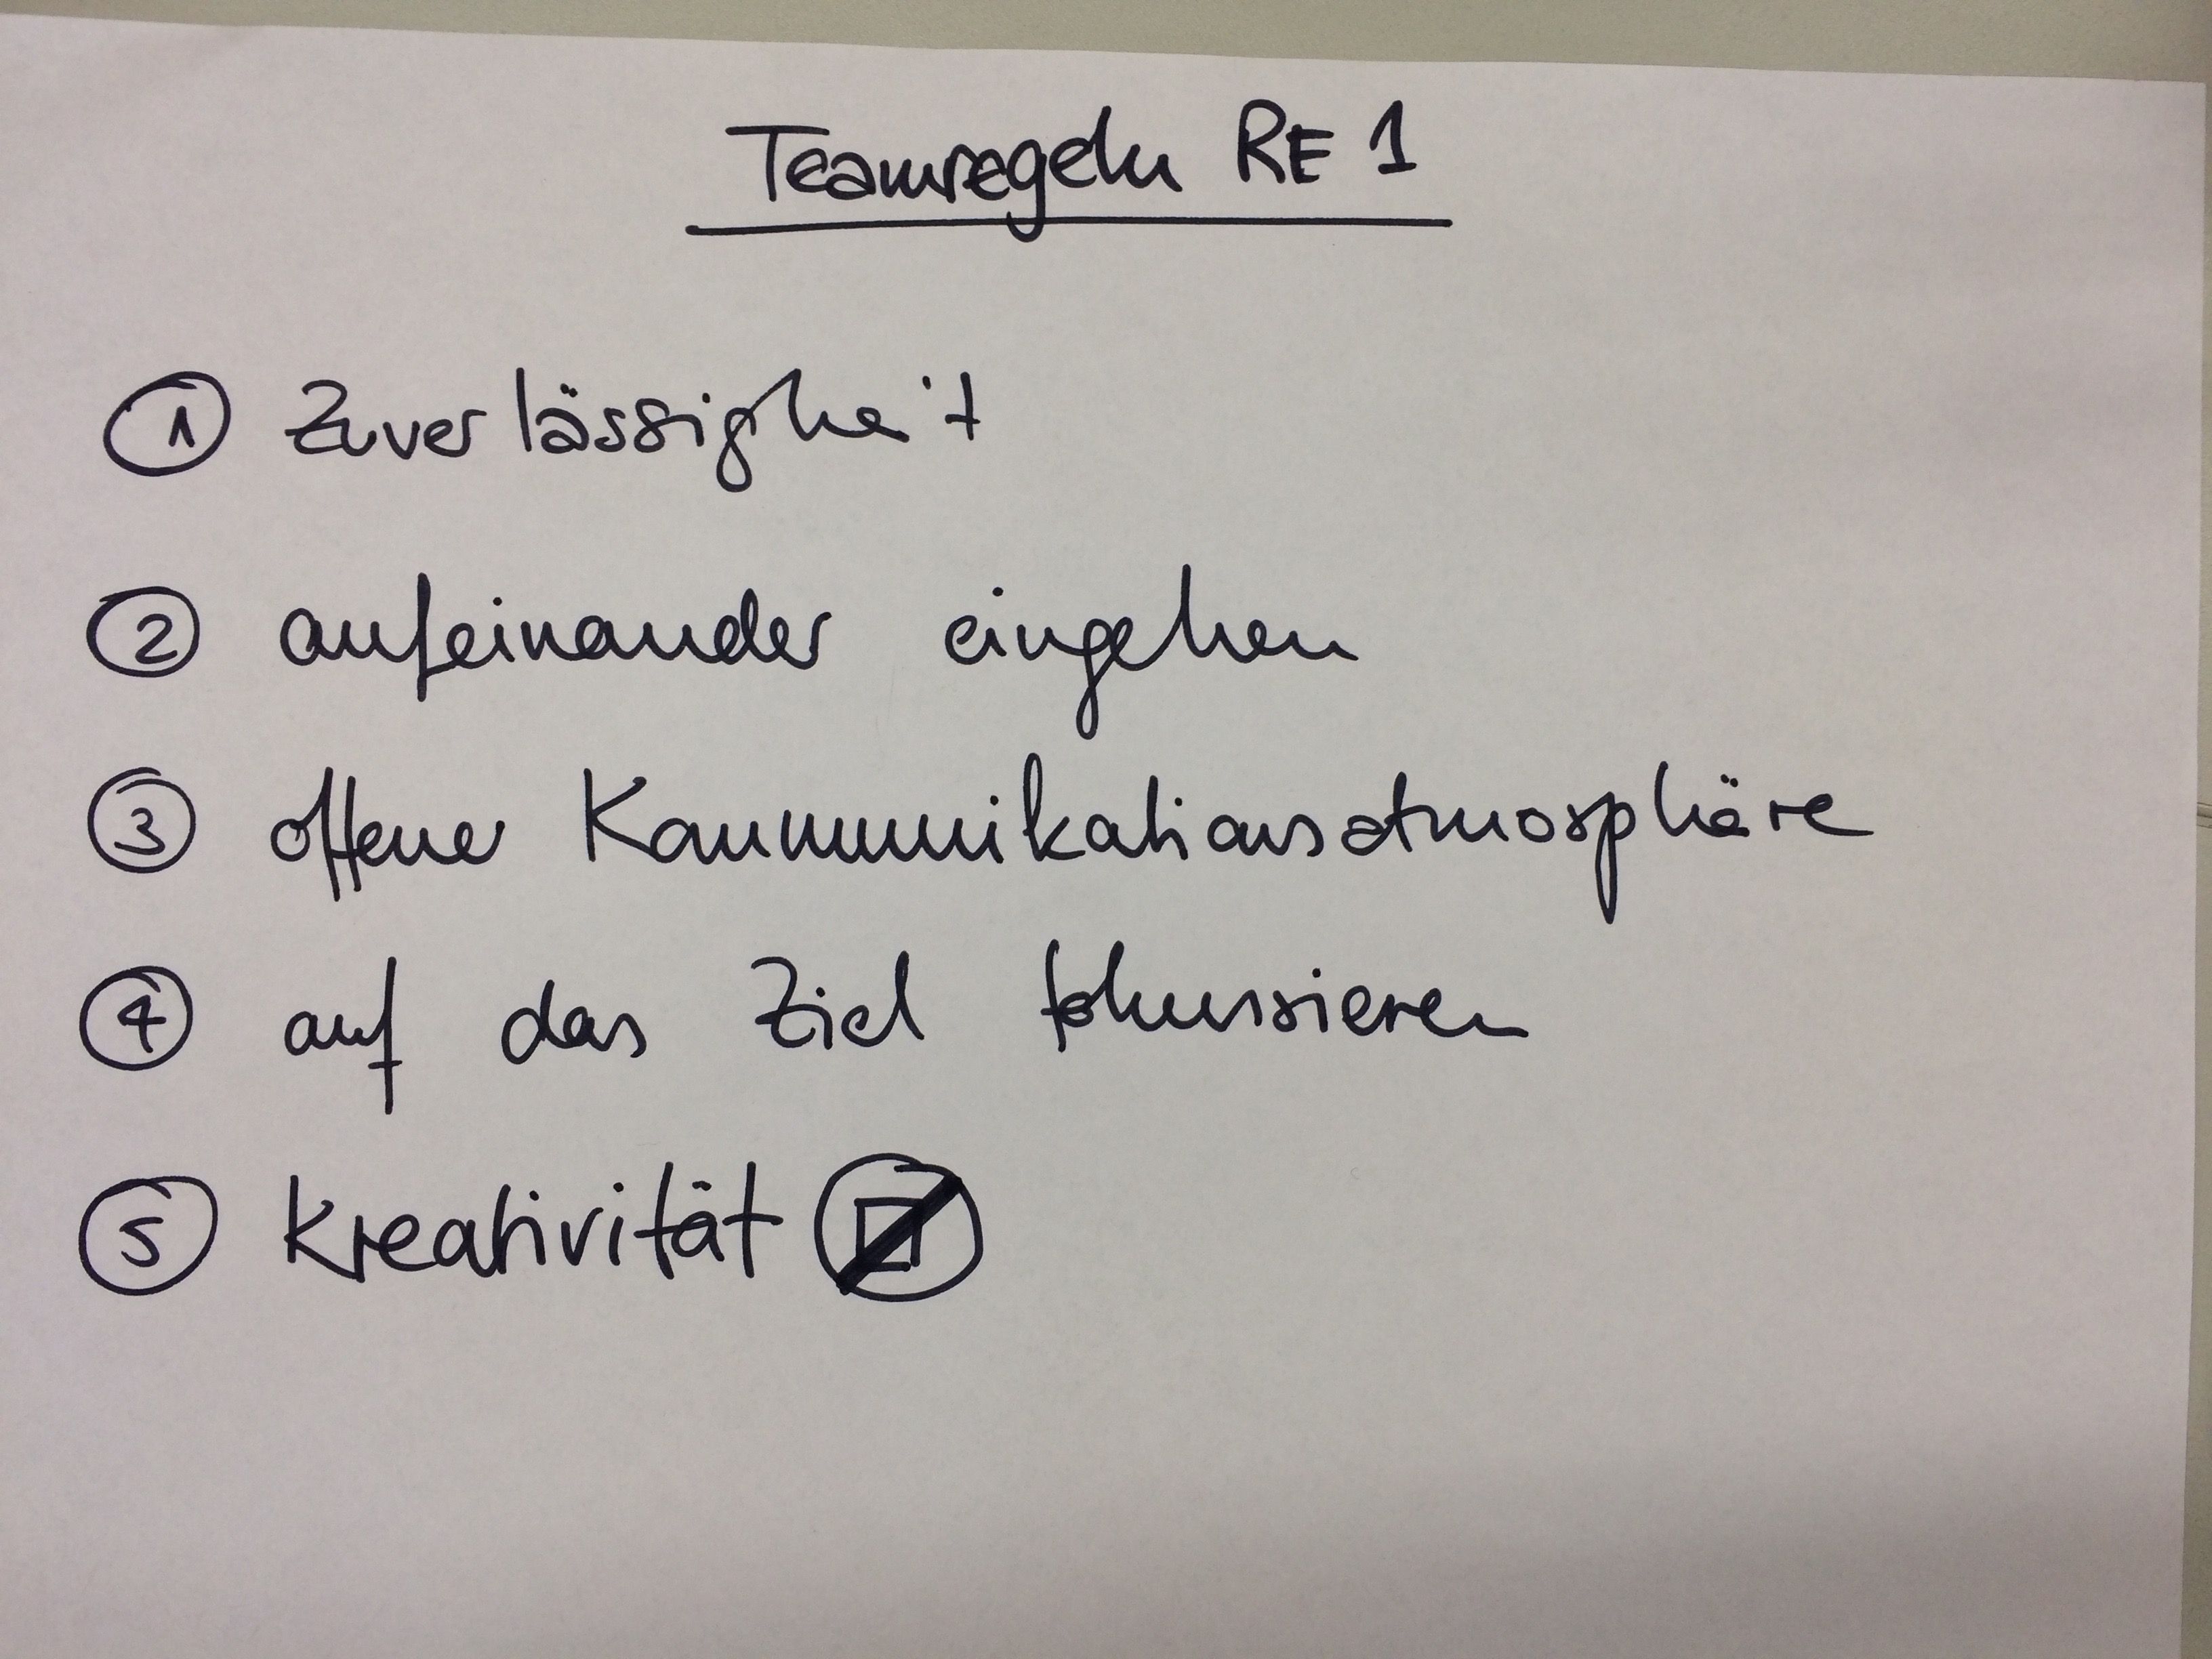 Teamregeln RE 1
1 Zuverlässigkeit
2 aufeinander eingehen
3 offener Kommunikationsatmosphäre
4 auf das Ziel fokussieren
5 Kreativität